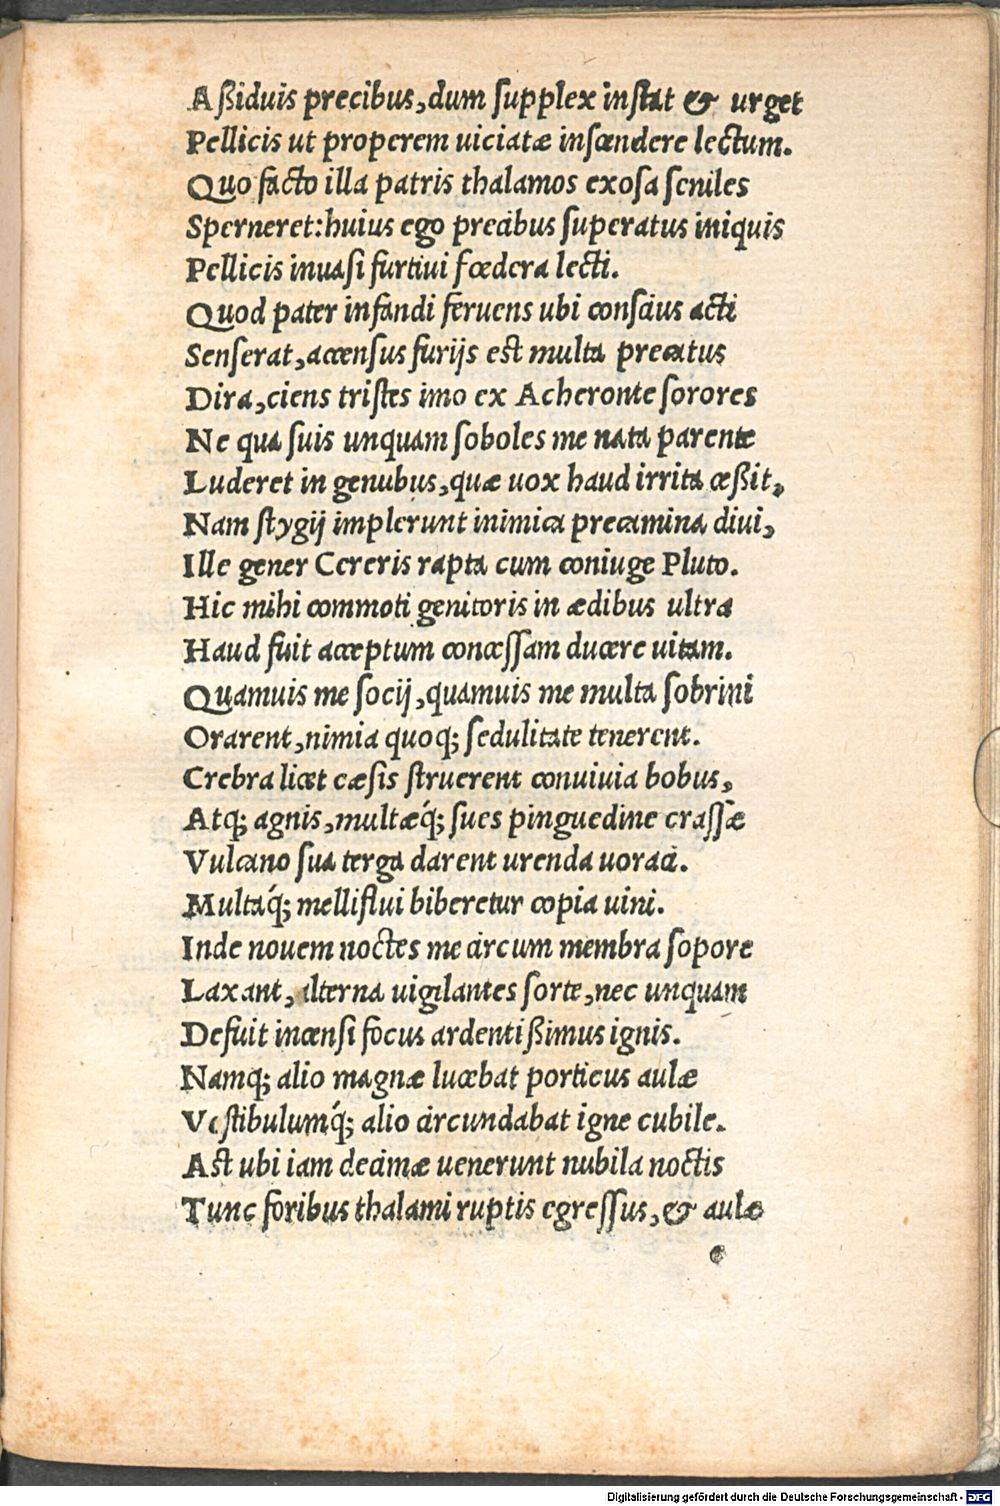 Aßiduis precibus, dum ſupplex inſtat & urget
Pellicis ut properem uiciatæ inſcendere lectum.
Quo facto illa patris thalamos exoſa ſeniles
Sperneret: huius ego precibus ſuperatus iniquis
Pellicis inuaſi furtiui fœdera lecti.
Quod pater infandi feruens ubi conſcius acti
Senſerat, accenſus furijs eſt multa precatus
Dira, ciens triſtes imo ex Acheronte ſorores
Ne qua ſuis unquam ſoboles me nata parente
Luderet in genubus, quæ uox haud irrita ceßit,
Nam ſtygij implerunt inimica precamina diui,
Ille gener Cereris rapta cum coniuge Pluto.
Hic mihi commoti genitoris in ædibus ultra
Haud fuit acceptum conceſſam ducere uitam.
Quamuis me ſocij, quamuis me multa ſobrini
Orarent, nimia quoq; ſedulitate tenerent.
Crebra licet cæſis ſtruerent conuiuia bobus,
Atq; agnis, multæq́; ſues pinguedine craſſæ
Vulcano ſua terga darent urenda uoraci.
Multaq́; melliflui biberetur copia uini.
Inde nouem noctes me circum membra ſopore
Laxant, alterna uigilantes ſorte, nec unquam
Defuit incenſi focus ardentißimus ignis.
Namq; alio magnæ lucebat porticus aulæ
Veſtibulumq́; alio circundabat igne cubile.
Aſt ubi iam decimæ uenerunt nubila noctis
Tunc foribus thalami ruptis egreſſus, & aulæ
e
Digitalisierung gefördert durch die Deutsche Forschungsgemeinschaft - DFG